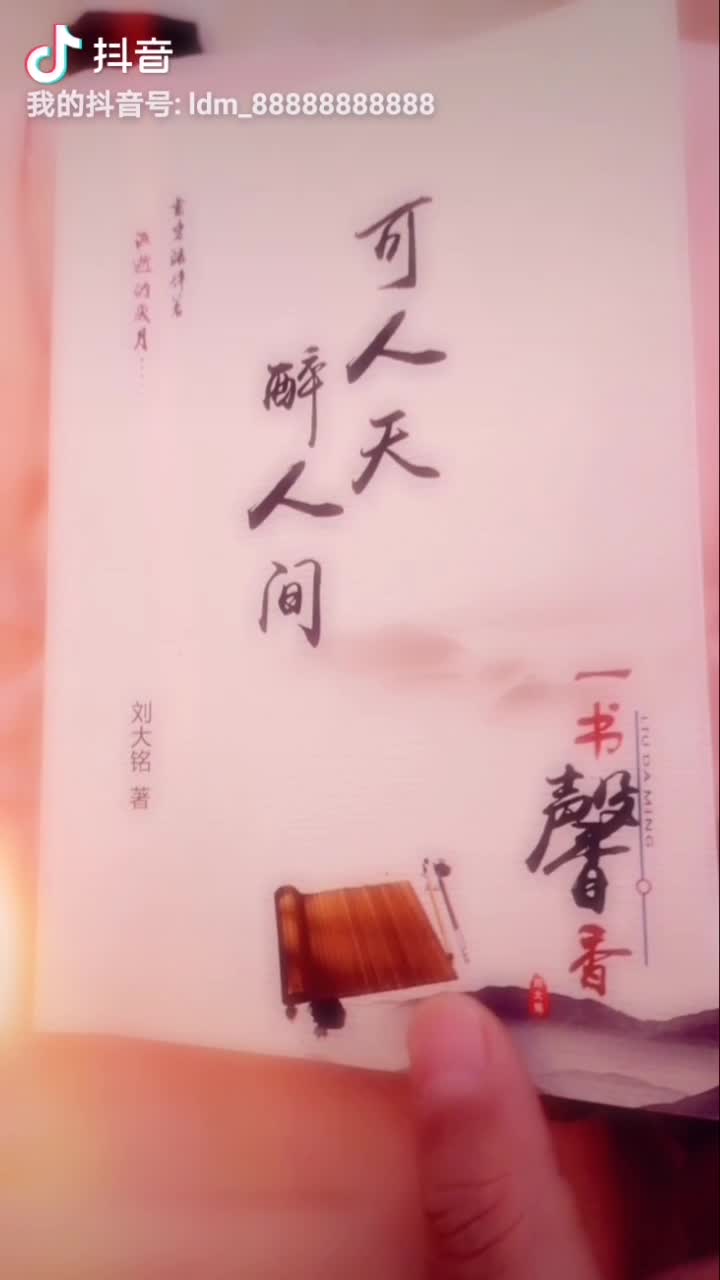 抖音
我的抖音号: ldm_88888888888
可人天
醉人间
流逝的岁月……
刘大铭 著
一书馨香
LIU DA MING